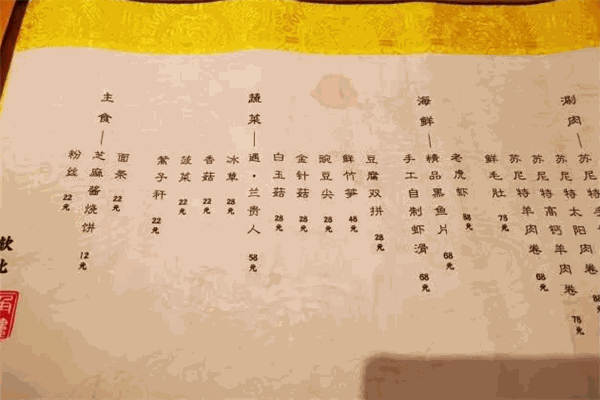 涮肉
苏尼特
苏尼特太阳肉卷
88元
苏尼特高钙羊肉卷
78元
苏尼特羊肉卷
68元
鲜毛肚
78元
海鲜
老虎虾
88元
精品黑鱼片
68元
手工自制虾滑
68元
蔬菜
豆腐双拼
28元
鲜竹笋
48元
豌豆尖
28元
金针菇
28元
白玉菇
28元
遇·兰贵人
58元
冰草
28元
香菇
22元
菠菜
22元
蒿子秆
22元
主食
面条
22元
芝麻酱烧饼
12元
粉丝
22元